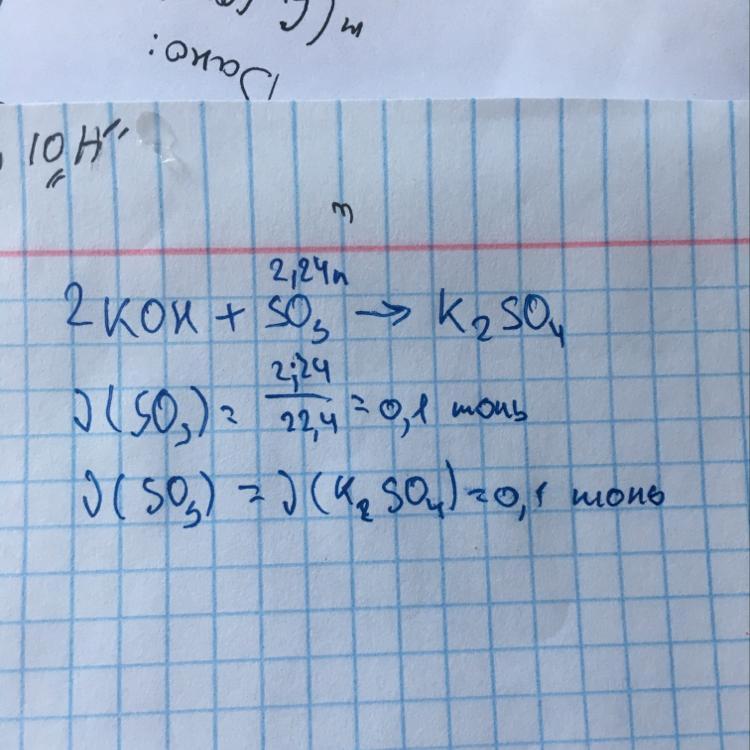 Дано:
10H"
m
2,24л
2KOH + SO3 → K2SO4
ν(SO3) = 2,24/22,4 = 0,1 моль
ν(SO3) = ν(K2SO4) = 0,1 моль